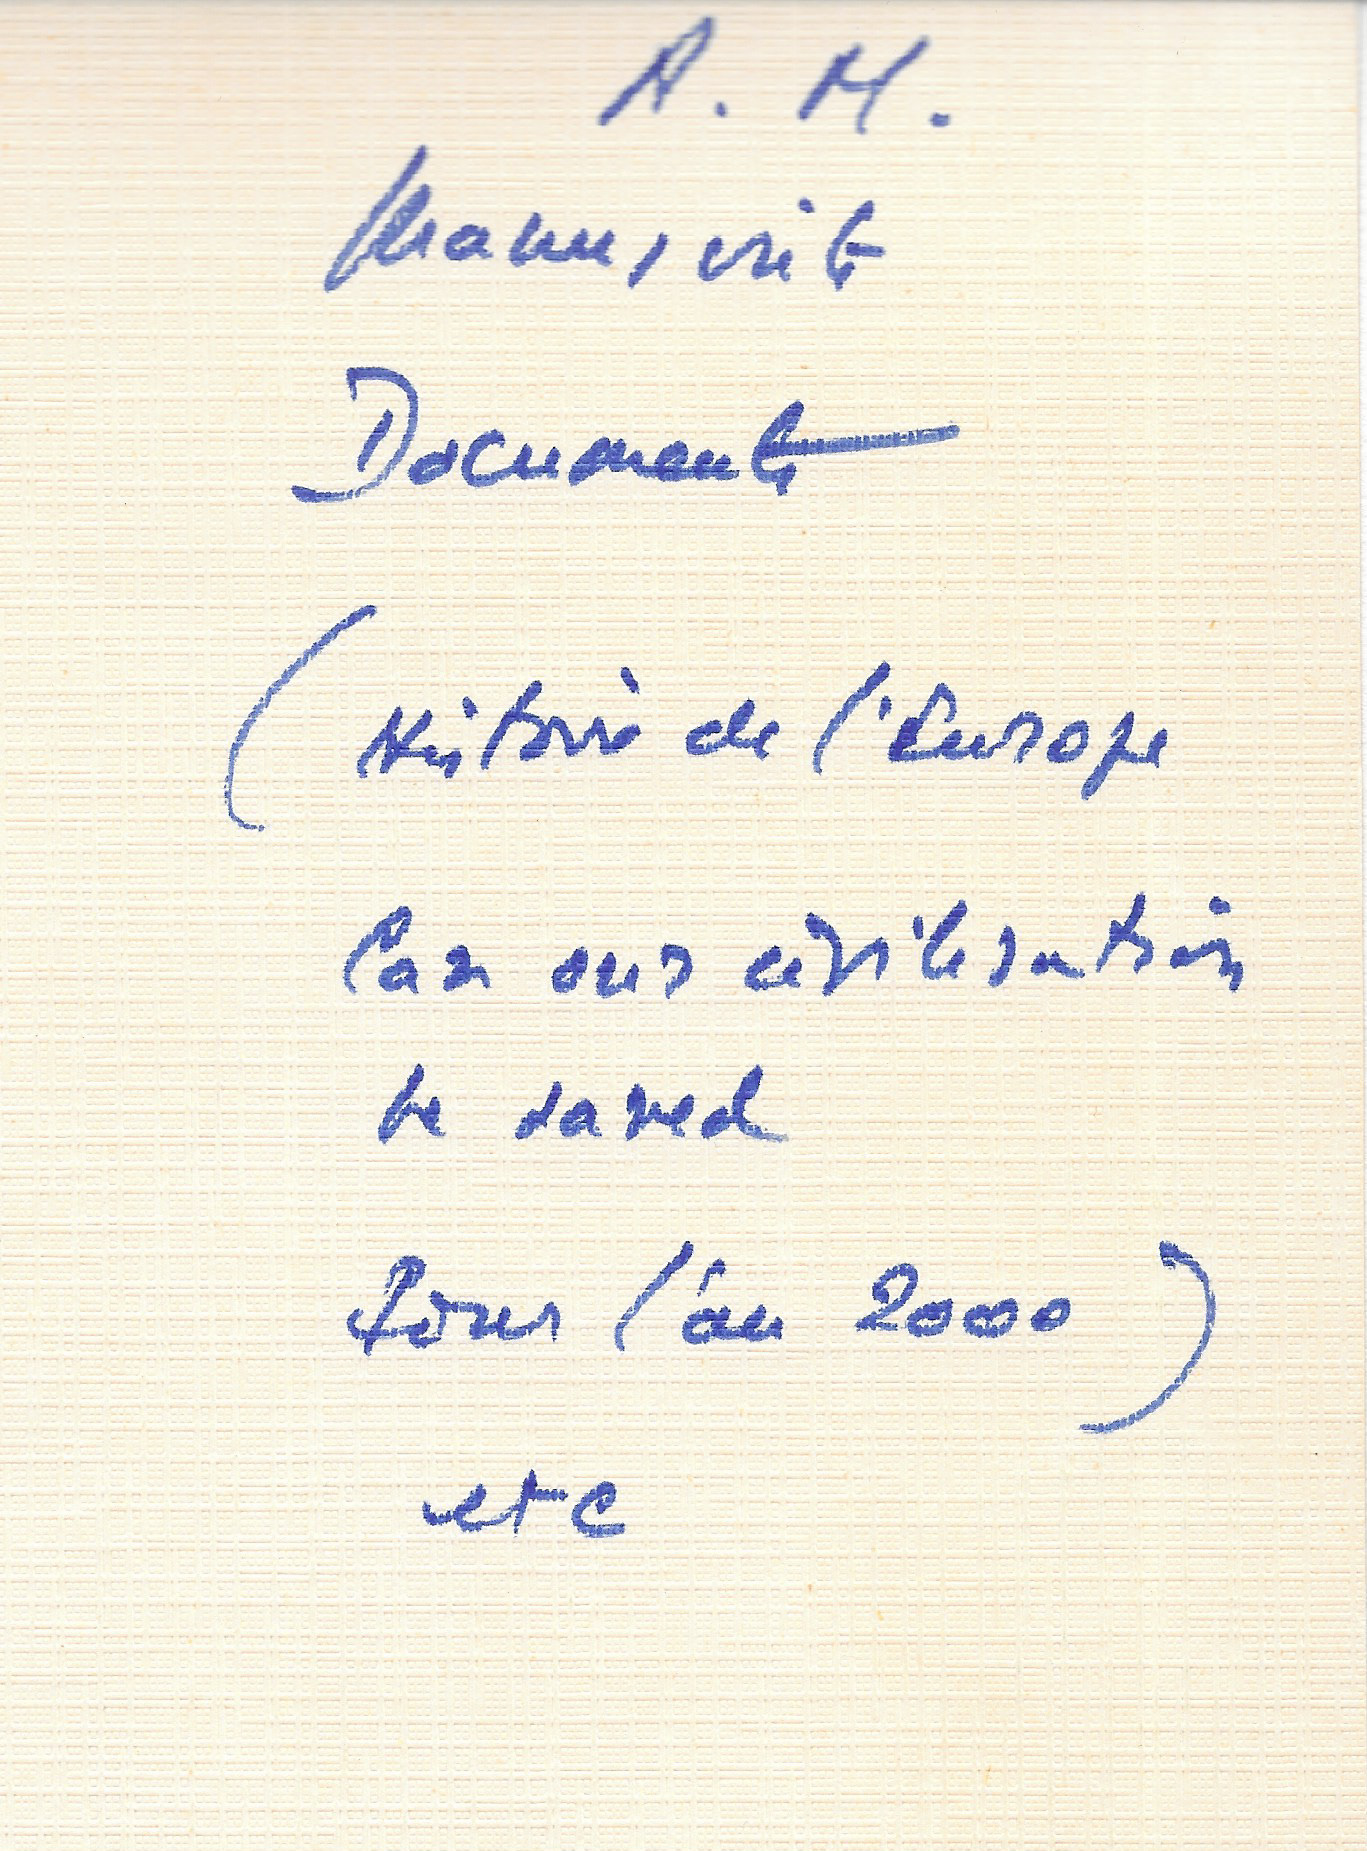 A. M.
Manuscrit
Documents
(Histoire de l'Europe
Can our civilisation
be saved
Pour l'an 2000)
etc